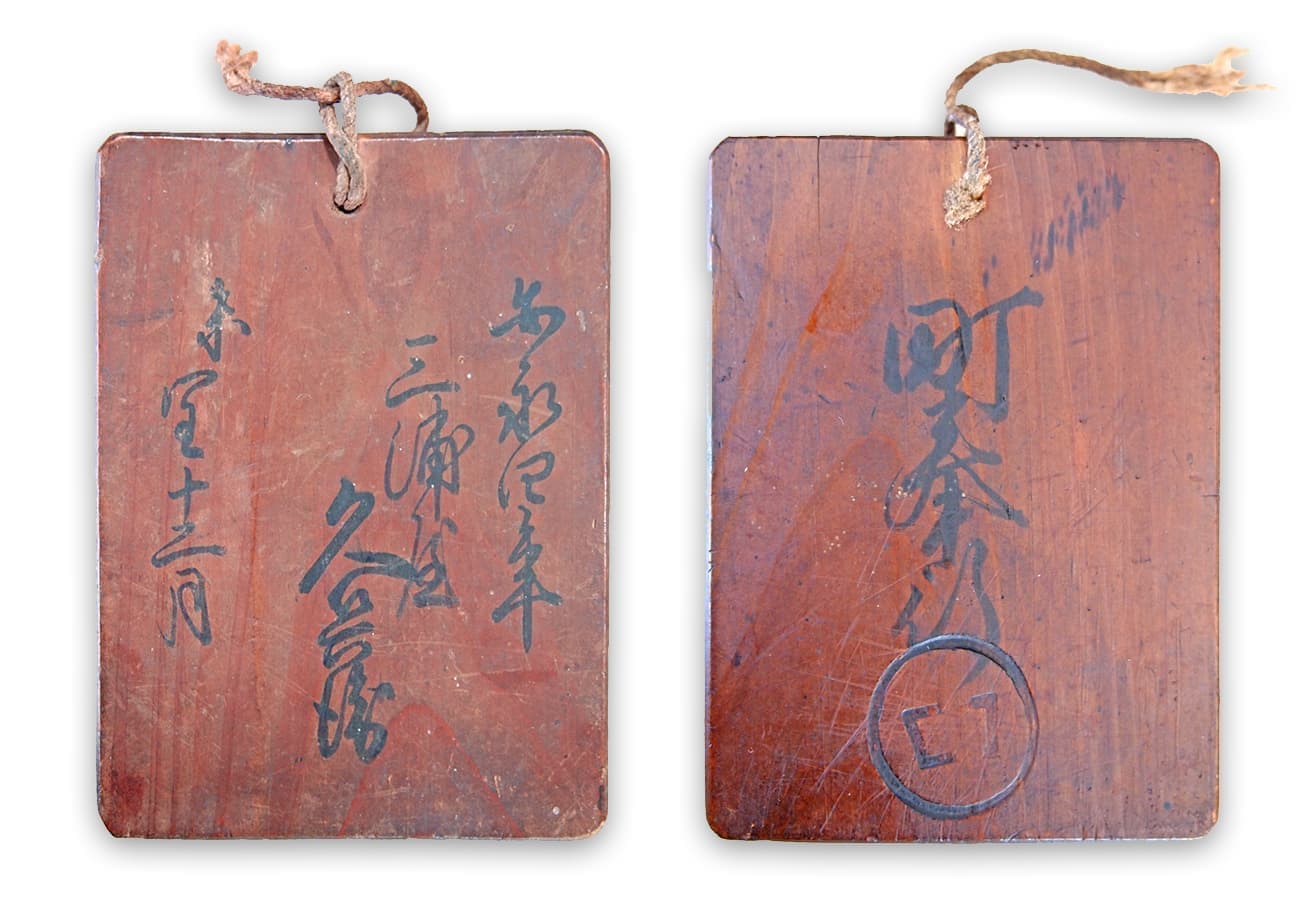 安永四年
三浦屋
久兵衛
未閏十二月
町奉行